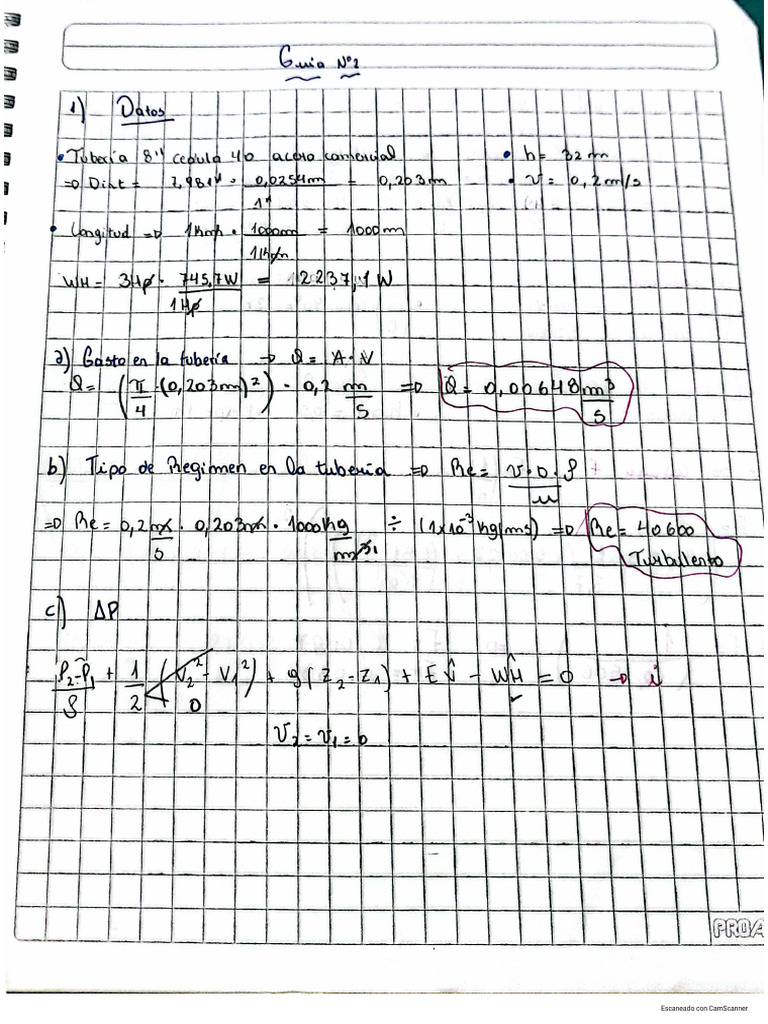 Guia Nº2
1) Datos
• Tuberia 8" cedula 40 acero comercial • h = 32 m
⇒ Dint = 7,981" · 0,0254m / 1" = 0,203m • v = 0,2 m/s
• Longitud ⇒ 1Km · 1000m / 1Km = 1000m
WH = 3Hp · 745,7W / 1Hp = 2237,1 W
a) Gasto en la tuberia → Q = A · V
Q = (π/4 · (0,203m)²) · 0,2 m/s ⇒ Q = 0,00648 m³/s
b) Tipo de Regimen en la tuberia ⇒ Re = v · D · ρ / μ
⇒ Re = 0,2 m/s · 0,203m · 1000 kg/m³ ÷ (1x10⁻³ kg/ms) ⇒ Re = 40600
Turbulento
c) ΔP
P₂-P₁/ρ + 1/2 (V₂² - V₁²) + g(Z₂-Z₁) + Ev̂ - WĤ = 0 → i
0
V₂ = V₁ = 0
PROA
Escaneado con CamScanner